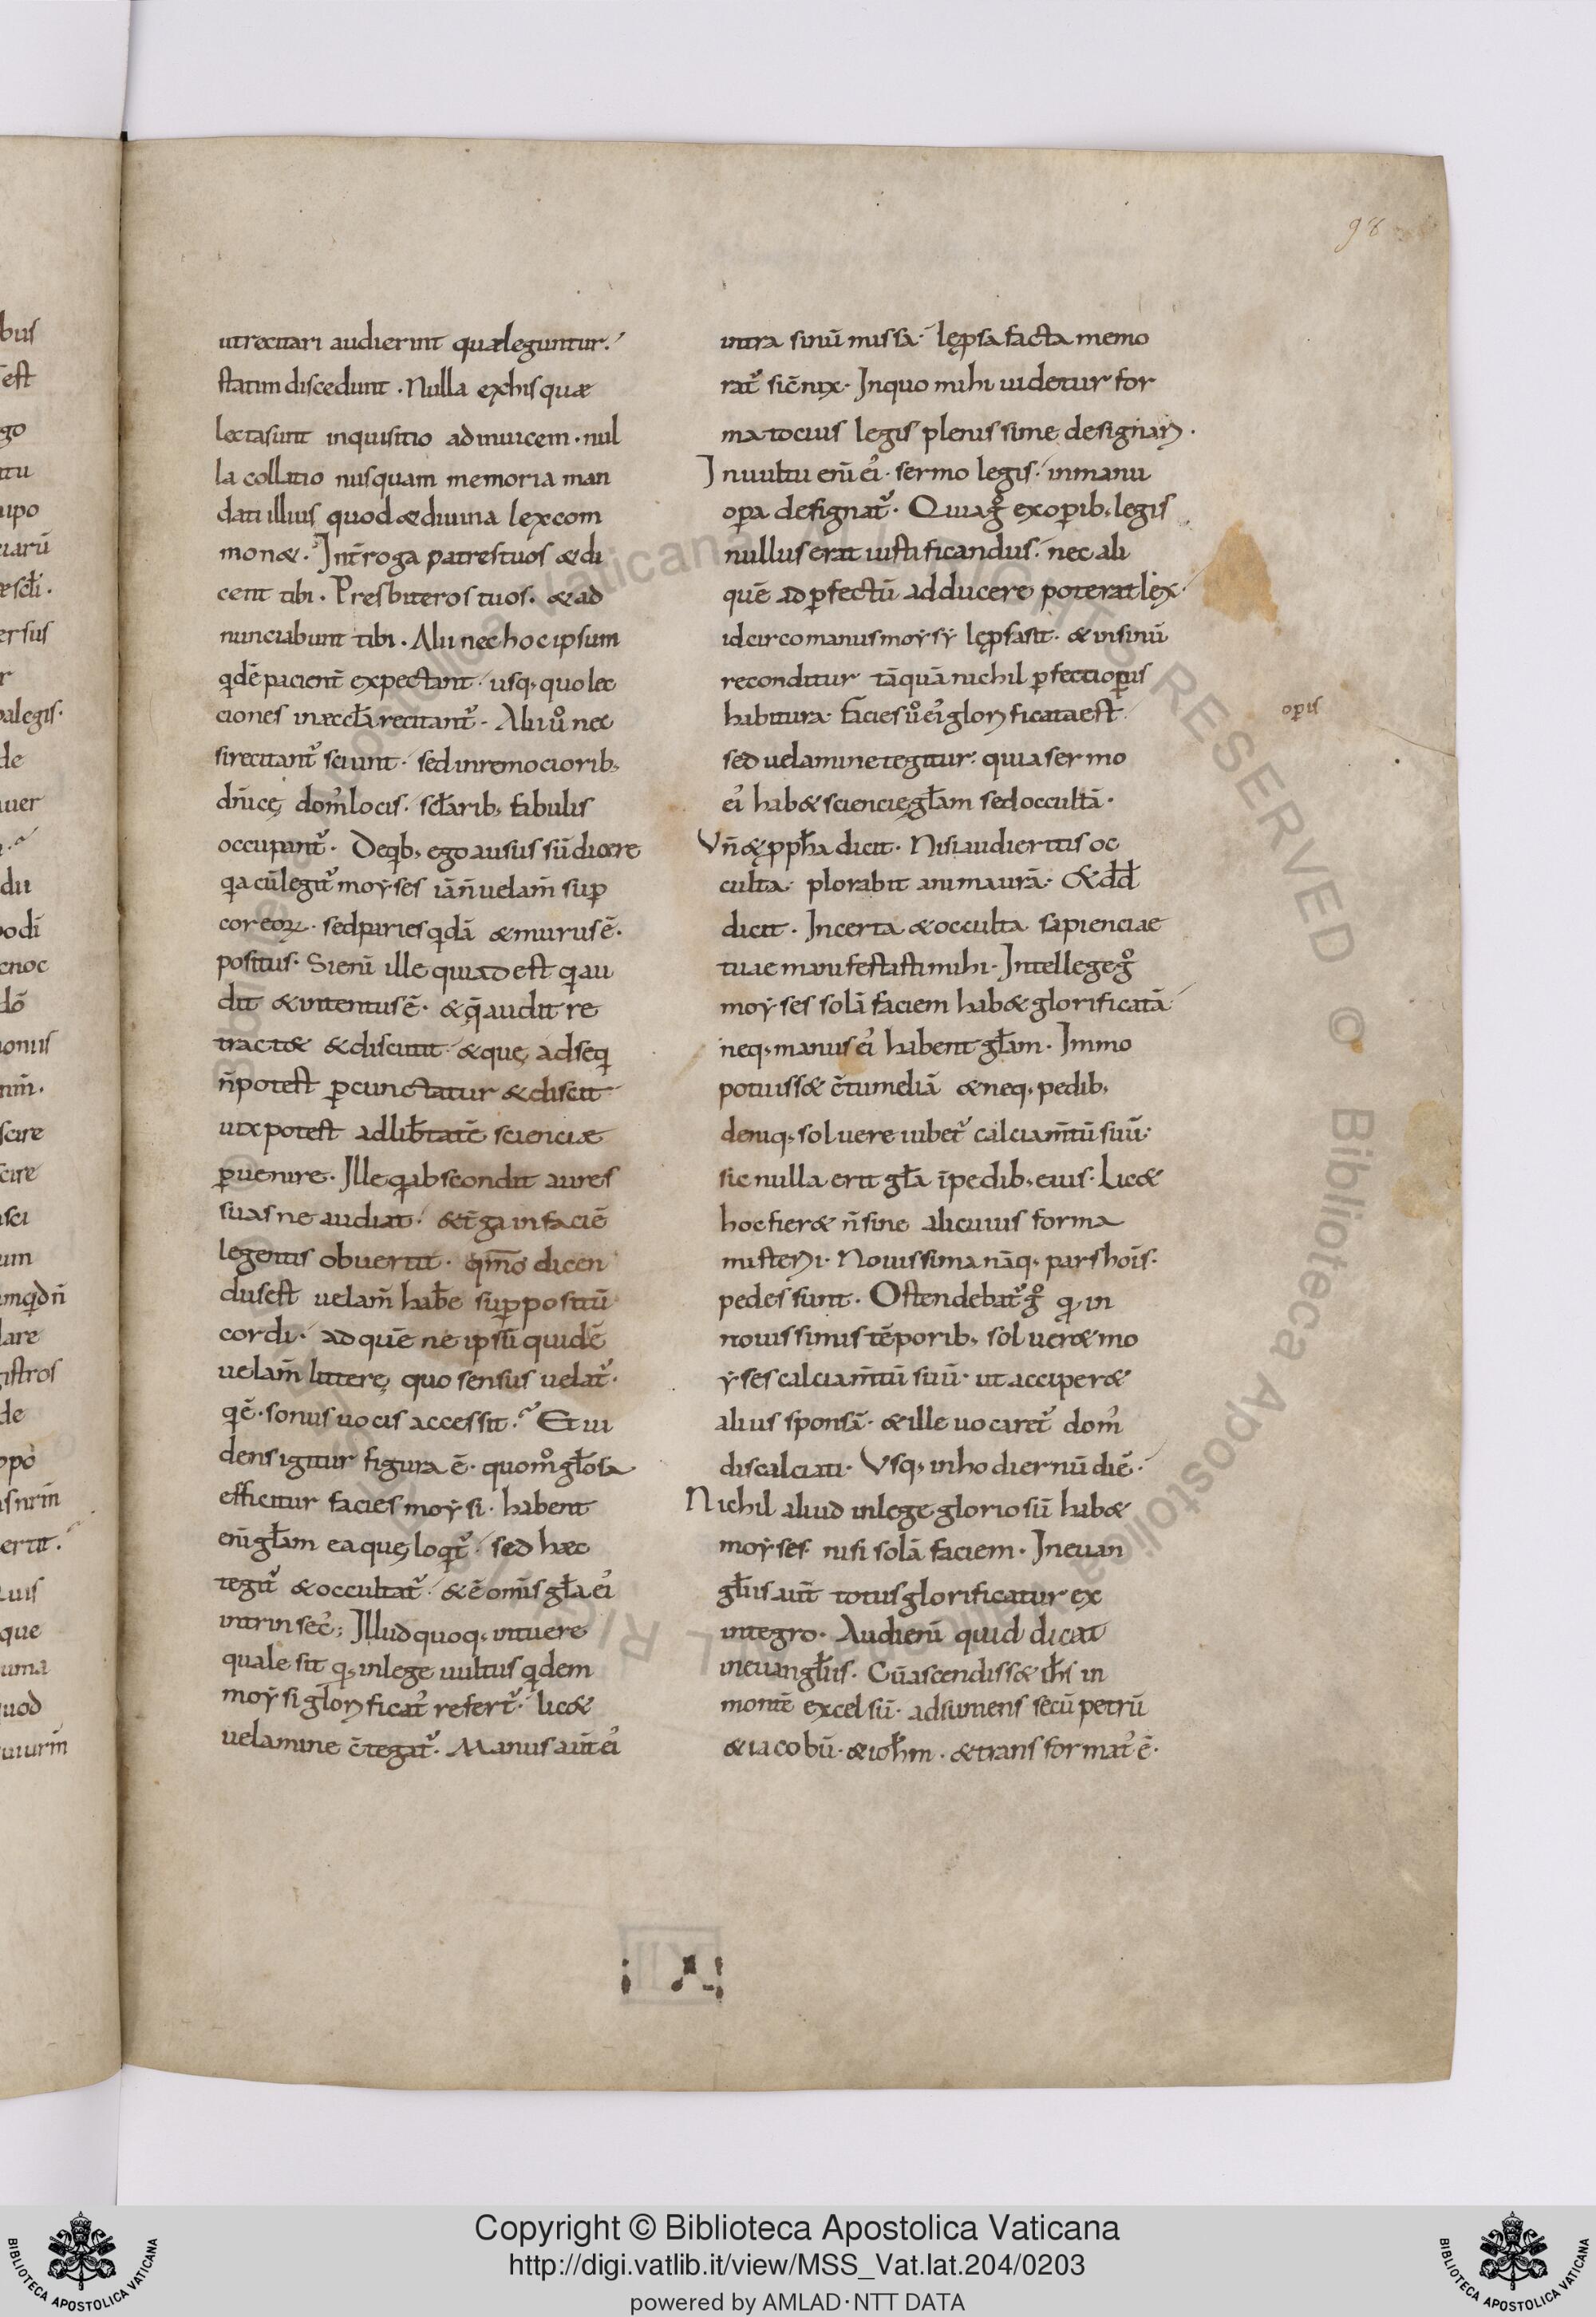 98
ut recitari audierint quæ leguntur.
statim discedunt. Nulla ex his quæ
lecta sunt inquisitio ad inuicem. nul
la collatio nusquam memoria man
dati illius quod & diuina lex com
mon&. Int̄roga patres tuos & di
cent tibi. Presbiteros tuos. & ad
nunciabunt tibi. Alii nec hoc ipsum
qdē pacient̄ expectant. usq; quo lec
ciones in æccl̄a recitant᷒. Alii uº nec
si recitant᷒ sciunt. sed in remociorib;
dn̄icę dom᷒ locis. scl̄arib; fabulis
occupant᷒. De qb; ego ausus sū dicere
qa cū legit᷒ moẏses iā n̄ uelam̄ sup̄
cor eoꝝ. sed paries qdā & murus ē.
positus. Si enī ille qui adest q au
dit & intentus ē. & q̄ audit re
tract& & discutit. & quę adseq
n̄ potest ꝑcunctatur & discit
uix potest ad lib̄tatē scienciæ
ꝑuenire. Ille q abscondit aures
suas ne audiat. & t̄ga in faciē
legentis obuertit. qm̄o dicen
dus est uelam̄ hab̄e sup̄positū
cordi. ad quē ne ipsū quidē
uelam̄ litterę quo sensus uelat᷒.
q ē. sonus uocis accessit. Et ui
dens igitur figura ē. quomº gl̄osa
efficitur facies moẏsi. habent
enī gl̄am ea quę loqt᷒. sed hæc
tegit᷒ & occultat᷒. & ē om̄is gl̄a ei᷒
intrinsec᷒; Illud quoq; intuere
quale sit q; in lege uultus qdem
moẏsi glorificat᷒ refert᷒. lic&
uelamine c̄tegat᷒. Manus aut̄ ei᷒
intra sinū missa. lępsa facta memo
rat᷒ sic̄ nix. In quo mihi uidetur for
ma tocius legis plenissime designari.
In uultu enī ei᷒. sermo legis. in manu
oꝑa designat᷒. Quia gº ex oꝑib; legis
nullus erat iustificandus. nec ali
quē ad ꝑfectū adducere poterat lex.
idcirco manus moẏsẏ lępsa sit. & in sinū
reconditur tāquā nichil ꝑfecti oꝑis
habitura. facies uº ei᷒ glorificata est
sed uelamine tegitur. quia sermo
ei᷒ hab& sciencię gl̄am sed occultā.
Vn̄ & ꝓph̄a dicit. Nisi audieritis oc
culta. plorabit anima ur̄a. & dd̄
dicit. Incerta & occulta sapienciae
tuae manifestasti mihi. Intellege gº
moẏses solā faciem hab& glorificatā.
neq; manus ei᷒ habent gl̄am. Immo
potuiss& c̄tumeliā & neq; pedib;
deniq; soluere iubet᷒ calciam̄tū suū.
sic nulla erit gl̄a ī pedib; eius. Lic&
hoc fier& n̄ sine alicuius forma
misterii. Nouissima nāq; pars hoīs.
pedes sunt. Ostendebat᷒ gº q in
nouissimis tēporib; soluer& mo
ẏses calciam̄tū suū. ut acciper&
alius sponsā. & ille uocaret᷒ dom᷒
discalciati. Vsq; in hodiernū diē.
Nichil aliud in lege gloriosū hab&
moẏses. nisi solā faciem. In euan
gl̄iis aut̄ totus glorificatur ex
integro. Audi enī quid dicat
in euangl̄iis. Cū ascendiss& ih̄s in
montē excelsū. adsumens secū petrū
& iacobū. & ioh̄m. & transformat᷒ ē.
oꝑis
Copyright © Biblioteca Apostolica Vaticana
http://digi.vatlib.it/view/MSS_Vat.lat.204/0203
powered by AMLAD·NTT DATA
BIBLIOTECA APOSTOLICA VATICANA
BIBLIOTECA APOSTOLICA VATICANA